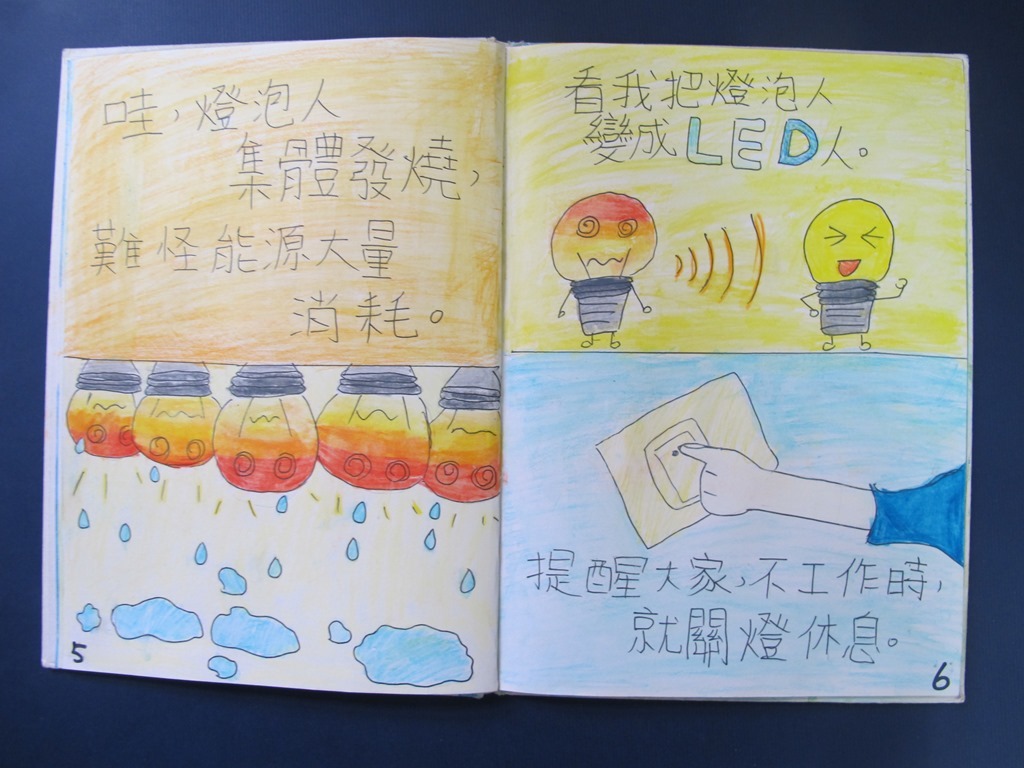 哇,燈泡人
集體發燒,
難怪能源大量
消耗。
5
看我把燈泡人
變成LED人。
提醒大家,不工作時,
就關燈休息。
6